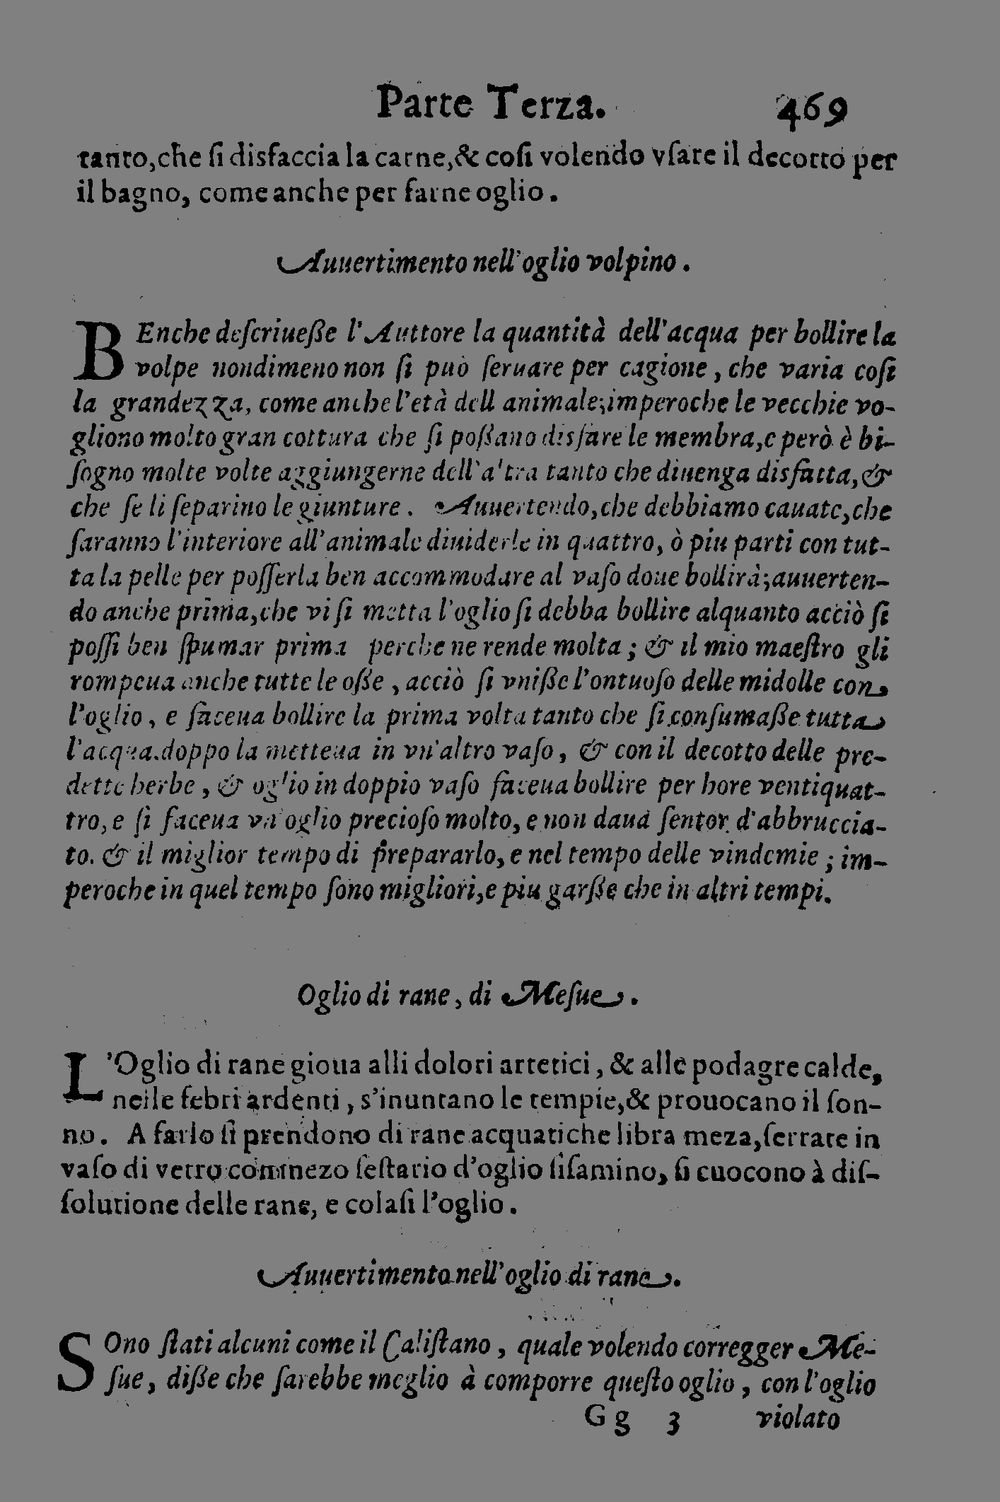 Parte Terza. 469
tanto,che ſi disfaccia la carne,& coſi volendo vſare il decotto per
il bagno, come anche per farne oglio.
Auuertimento nell'oglio volpino.
BEnche deſcriueſſe l'Auttore la quantità dell'acqua per bollire la
volpe nondimeno non ſi può ſeruare per cagione, che varia coſi
la grandezza, come anche l'età dell animale;imperoche le vecchie vo-
gliono molto gran cottura che ſi poſſano disfare le membra,e però è bi-
ſogno molte volte aggiungerne dell'altra tanto che diuenga disfatta,&
che ſe li ſeparino le giunture. Auuertendo,che debbiamo cauate,che
ſaranno l'interiore all'animale diuiderle in quattro, ò piu parti con tut-
ta la pelle per poſſerla ben accommodare al vaſo doue bollirà;auuerten-
do anche prima,che vi ſi metta l'oglio ſi debba bollire alquanto acciò ſi
poſſi ben ſpumar prima perche ne rende molta; & il mio maeſtro gli
rompeua anche tutte le oſſe, acciò ſi vniſſe l'ontuoſo delle midolle con
l'oglio, e faceua bollire la prima volta tanto che ſi conſumaſſe tutta
l'acqua.doppo la metteua in vn'altro vaſo, & con il decotto delle pre-
dette herbe, & oglio in doppio vaſo faceua bollire per hore ventiquat-
tro,e ſi faceua vn oglio precioſo molto,e non daua ſentor d'abbruccia-
to. & il miglior tempo di prepararlo,e nel tempo delle vindemie; im-
peroche in quel tempo ſono migliori,e piu graſſe che in altri tempi.
Oglio di rane, di Meſue.
L'Oglio di rane gioua alli dolori artetici, & alle podagre calde,
nelle febri ardenti, s'inuntano le tempie,& prouocano il ſon-
no. A farlo ſi prendono di rane acquatiche libra meza,ſerrate in
vaſo di vetro con mezo ſeſtario d'oglio ſiſamino, ſi cuocono à diſ-
ſolutione delle rane, e colaſi l'oglio.
Auuertimento nell'oglio di rane.
SOno ſtati alcuni come il Caliſtano, quale volendo corregger Me-
ſue, diſſe che ſarebbe meglio à comporre queſto oglio, con l'oglio
Gg 3 violato